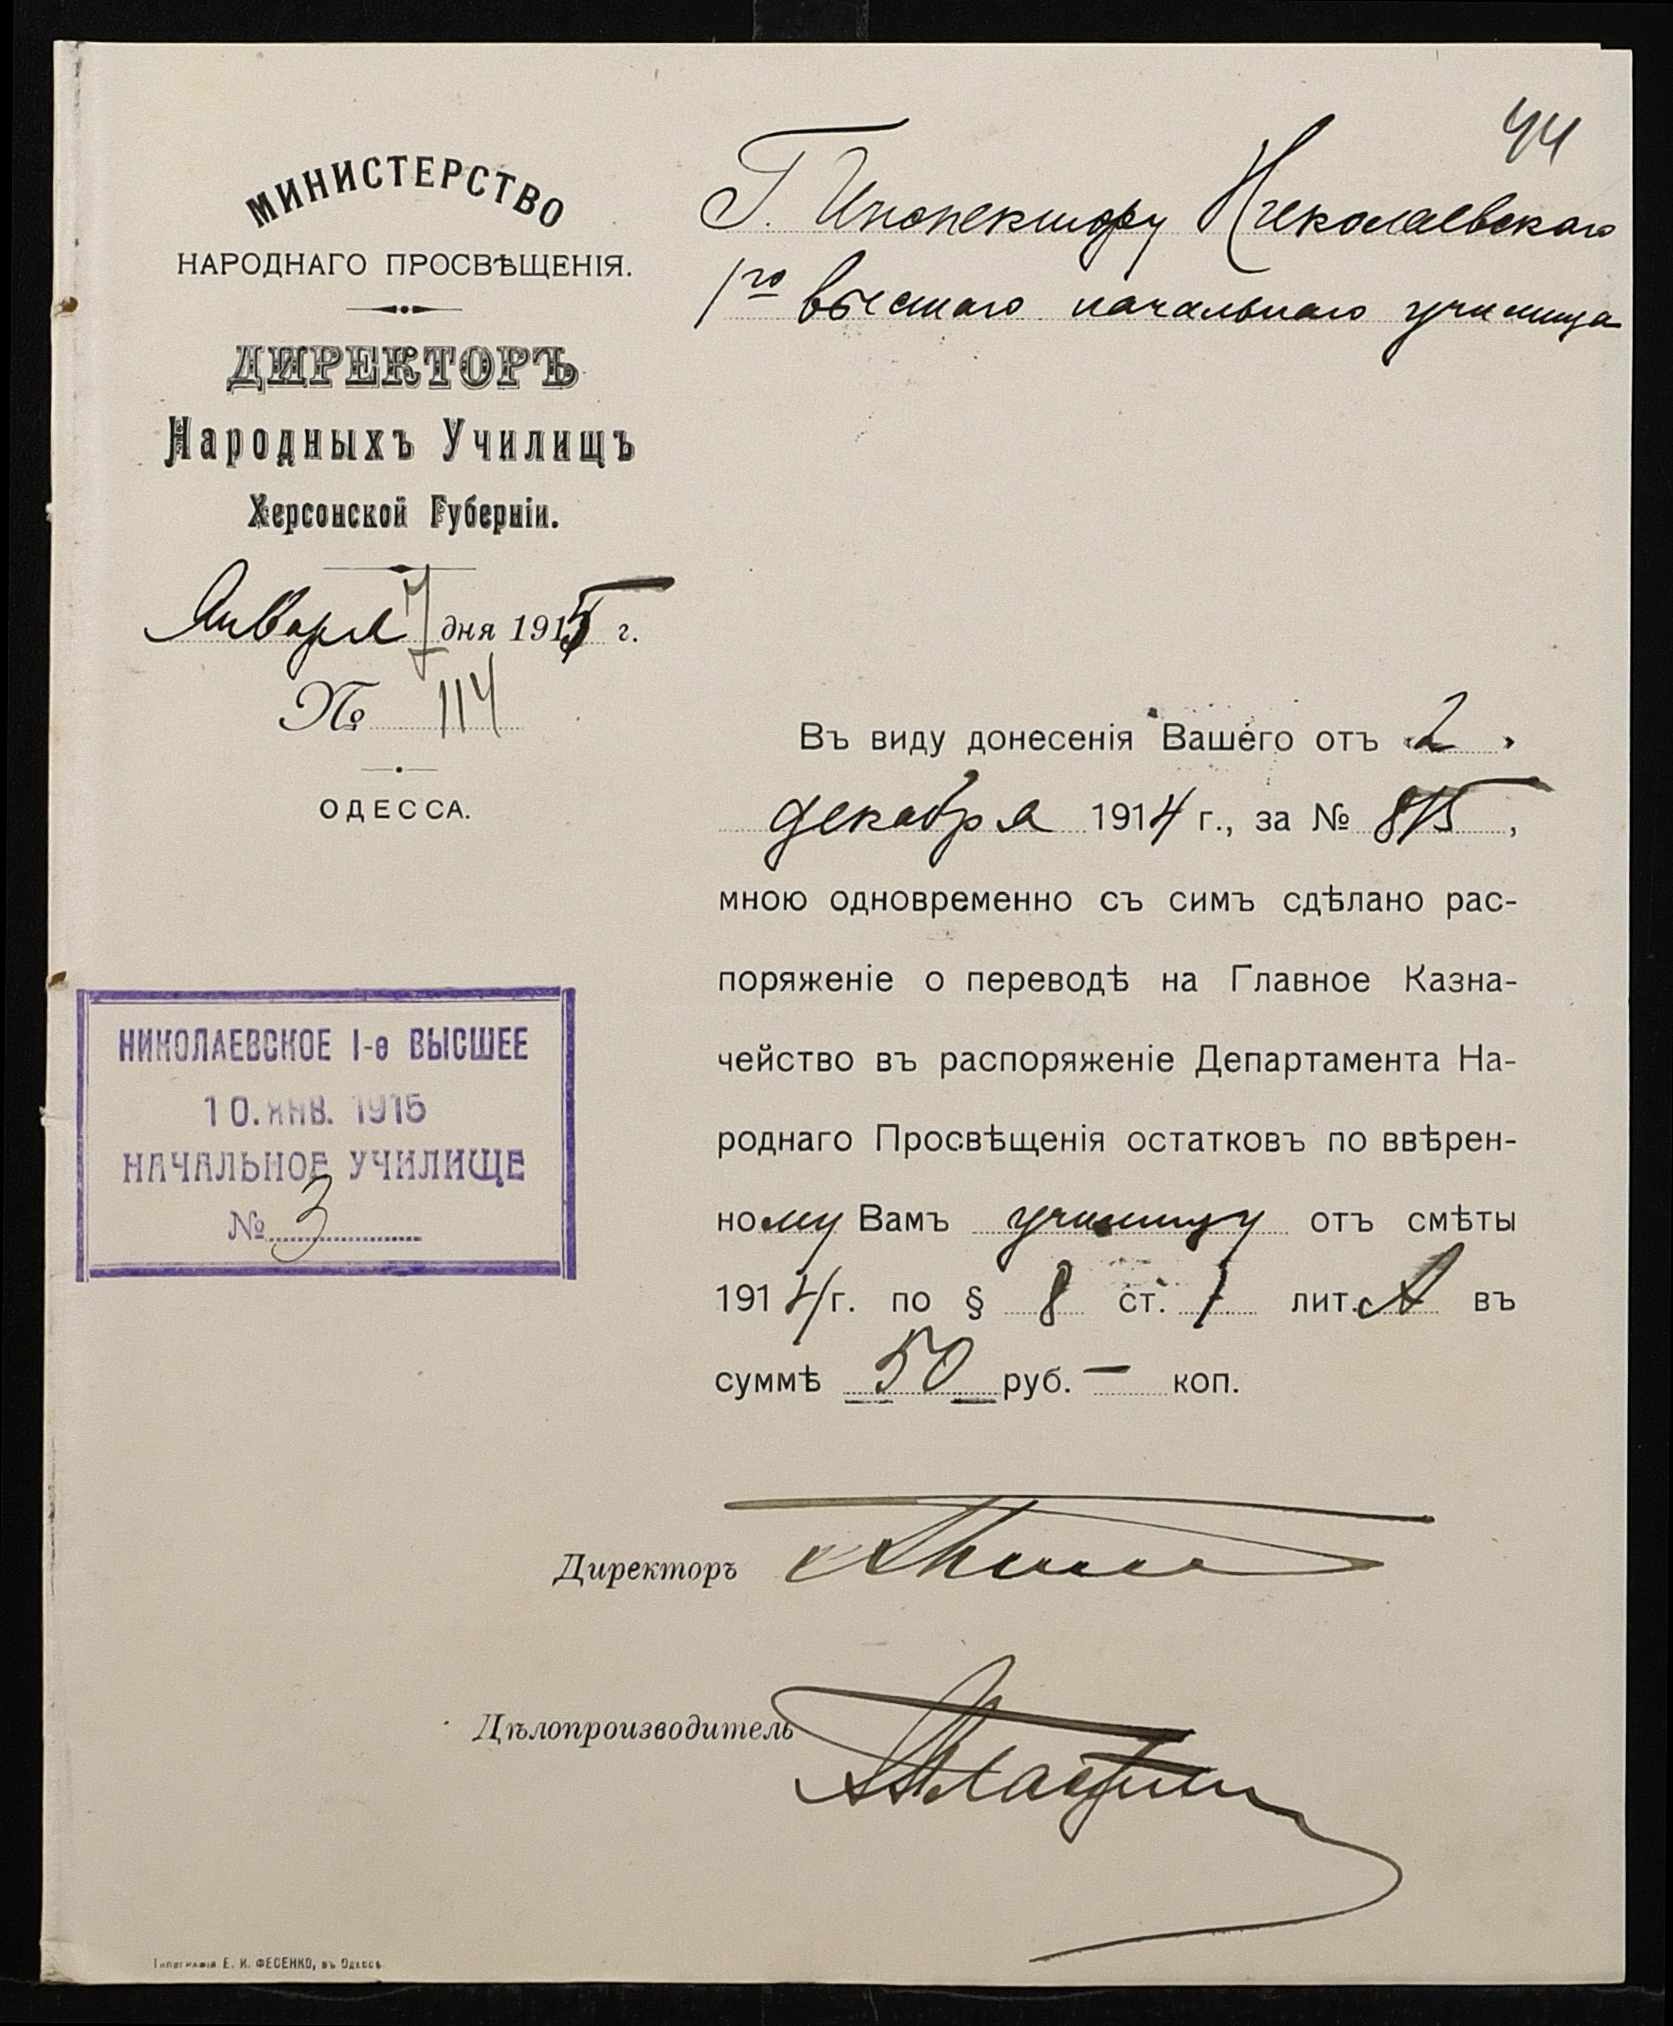 44
МИНИСТЕРСТВО
НАРОДНАГО ПРОСВѢЩЕНІЯ.
ДИРЕКТОРЪ
Народныхъ Училищъ
Херсонской Губерніи.
Января 7 дня 1915 г.
№ 114
ОДЕССА.
Г. Инспектору Николаевскаго
1го высшаго начальнаго училища
Въ виду донесенія Вашего отъ „2"
декабря 1914 г., за № 815,
мною одновременно съ симъ сдѣлано рас-
поряженіе о переводѣ на Главное Казна-
чейство въ распоряженіе Департамента На-
роднаго Просвѣщенія остатковъ по ввѣрен-
ному Вамъ училищу отъ смѣты
1914 г. по § 8 ст. 1 лит. А въ
суммѣ 50 руб. — коп.
НИКОЛАЕВСКОЕ 1-е ВЫСШЕЕ
10. ЯНВ. 1915
НАЧАЛЬНОЕ УЧИЛИЩЕ
№ 3
Директоръ
Дѣлопроизводитель
Типографія Е. И. ФЕСЕНКО, въ Одессѣ